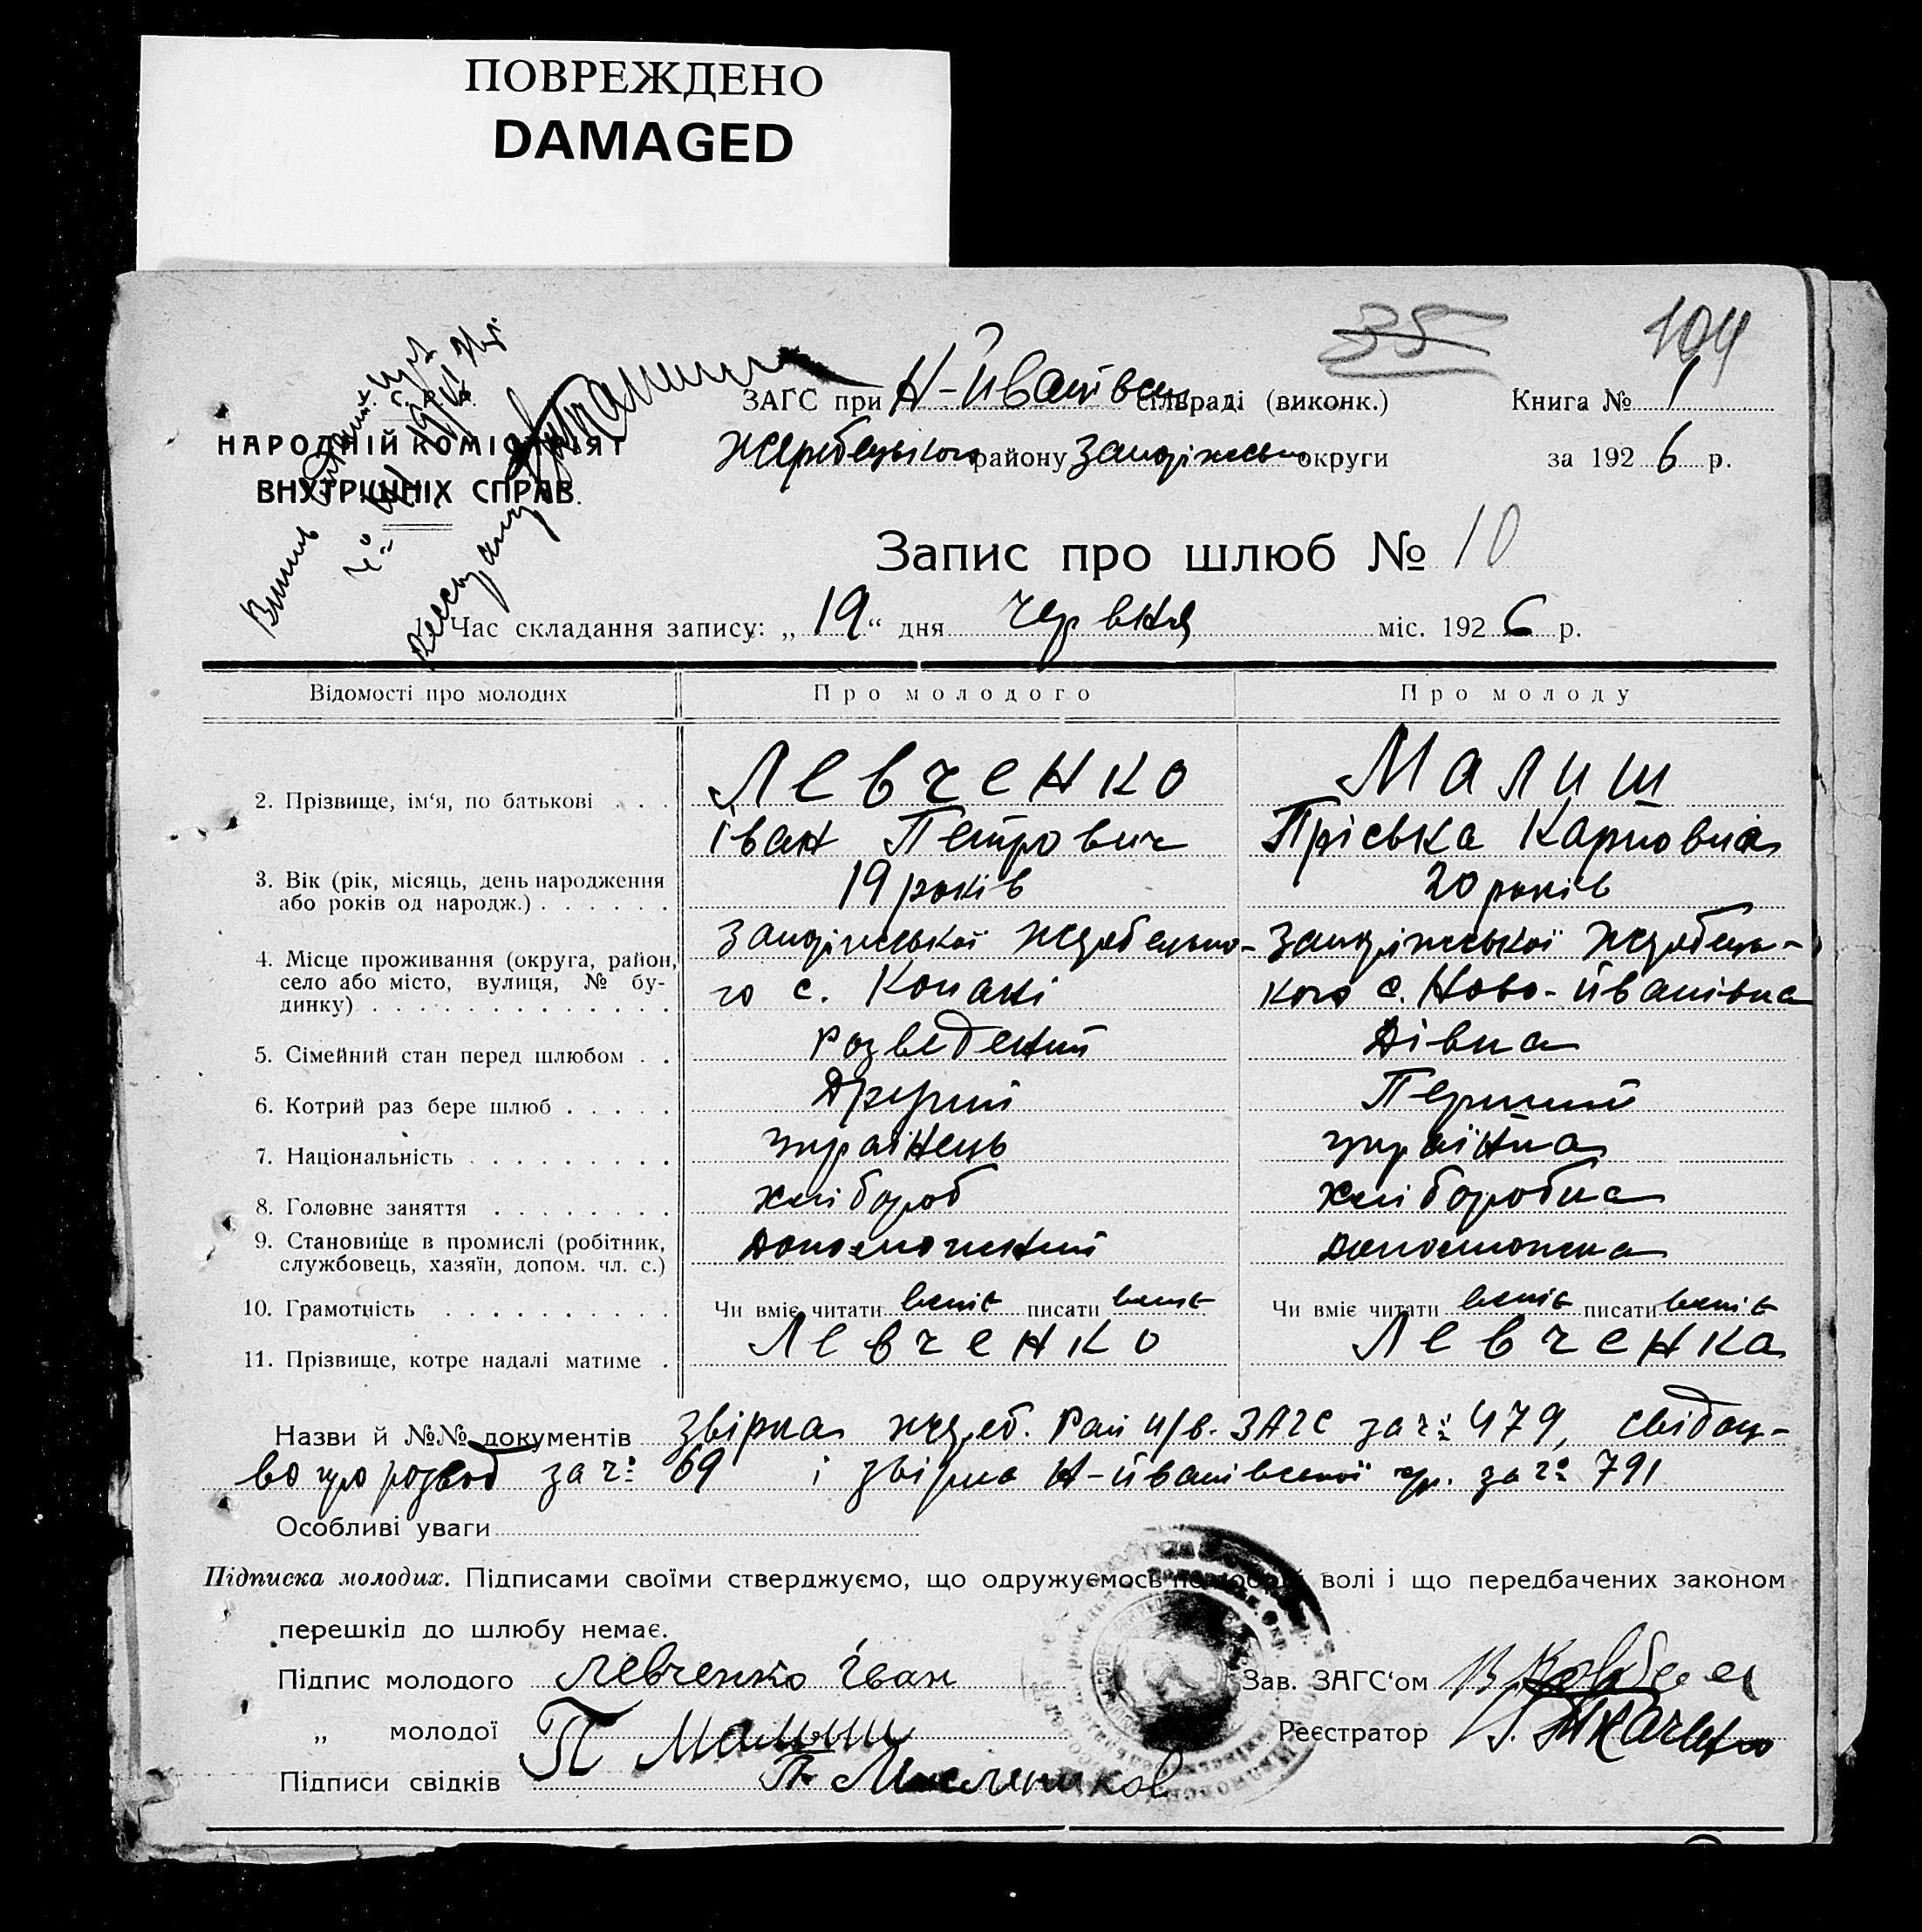 ПОВРЕЖДЕНО
DAMAGED
35
104
У. С. Р. Р.
НАРОДНІЙ КОМІСАРІЯТ
ВНУТРІШНІХ СПРАВ.
ЗАГС при Н-Иванівськ сільраді (виконк.) Книга № 1
Жеребецького району Запоріжськ округи за 1926 р.
Запис про шлюб № 10
1. Час складання запису: „19“ дня червня міс. 1926 р.
Відомості про молодих Про молодого Про молоду
2. Прізвище, ім‘я, по батькові . . . Левченко Малиш
Іван Петрович Пріська Карповна
3. Вік (рік, місяць, день народження 19 років 20 років
або років од народж.) . . . . . .
Запоріжської Жеребецько- Запоріжської Жеребець-
4. Місце проживання (округа, район,
село або місто, вулиця, № бу- го с. Копані кого с. Ново-Иванівка
динку) . . . . . . . . . . . . . .
5. Сімейний стан перед шлюбом . . Розведений Дівка
6. Котрий раз бере шлюб . . . . . Другий Перший
7. Національність . . . . . . . . . українець українка
8. Головне заняття . . . . . . . . хлібороб хліборобка
9. Становище в промислі (робітник, допоможний допоможна
службовець, хазяїн, допом. чл. с.)
10. Грамотність . . . . . . . . . . Чи вміє читати вміє писати вміє Чи вміє читати вміє писати вміє
11. Прізвище, котре надалі матиме . Левченко Левченка
Назви й №№ документів звірка жереб. Рай и/в. ЗАГС за ч: 479, свідоц-
во про розвод за ч: 69 і звірка Н-Иванівської гр. за ч: 791
Особливі уваги
Підписка молодих. Підписами своїми стверджуємо, що одружуємось по добрій волі і що передбачених законом
перешкід до шлюбу немає.
Підпис молодого Левченко Іван Зав. ЗАГС‘ом
„ молодої П Малыш Реєстратор Ткаченко
Підписи свідків